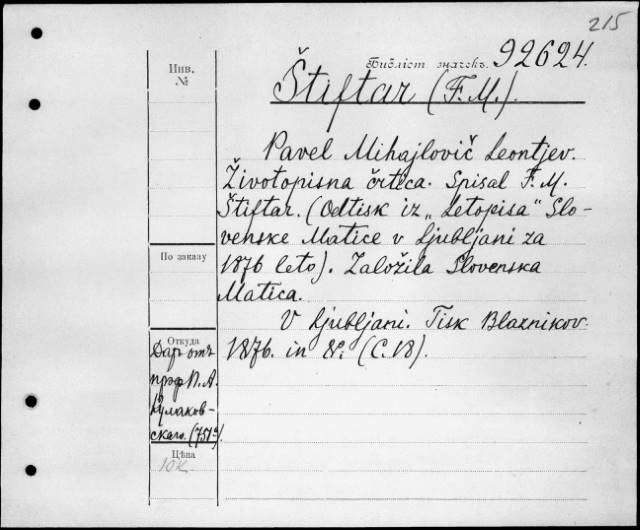 215
Библіот. значекъ. 92624.
Инв.
№
Štiftar (F. M.).
Pavel Mihajlovič Leontjev.
Životopisna črtica. Spisal F. M.
Štiftar. (Odtisk iz „Letopisa“ Slo-
venske Matice v Ljubljani za
1876 leto). Založila Slovenska
Matica.
V Ljubljani. Tisk Blaznikov.
1876. in 8º. (C. 18).
По заказу
Откуда
Даръ отъ
проф П. А.
Кулаков-
скаго.
Цѣна
10к